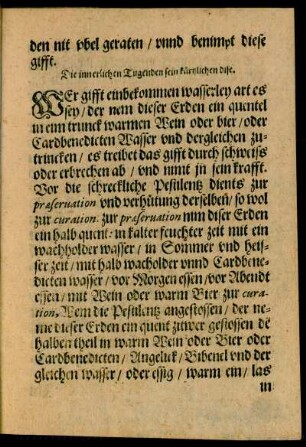 den nit vbel geraten / vnnd benimpt diese
gifft.
Die innerlichen Tugenden sein kürtzlichen dise.
WEr gifft einbekommen wasserley art es
sey / der nem dieser Erden ein quentel
in eim trunck warmen Wein oder bier / oder
Cardbenedicten Wasser vnd dergleichen zu-
trincken / es treibet das gifft durch schweiss
oder erbrechen ab / vnd nimt jn sein krafft.
Vor die schreckliche Pestilentz dients zur
præseruation vnd verhütung derselben / so wol
zur curation. zur præseruation nim diser Erden
ein halb quent. in kalter feuchter zeit mit ein
wachholder wasser / in Sommer vnd heis-
ser zeit / mit halb wacholder vnnd Cardbene-
dicten wasser / vor Morgen essen / vor Abendt
essen / mit Wein oder warm Bier zur cura-
tion, Wem die Pestilentz angestossen / der ne-
me dieser Erden ein quent zitwer gestossen dē
halben theil in warm Wein oder Bier oder
Cardbenedicten / Angelick / Bibenel vnd der
gleichen wasser / oder essig / warm ein / las
in